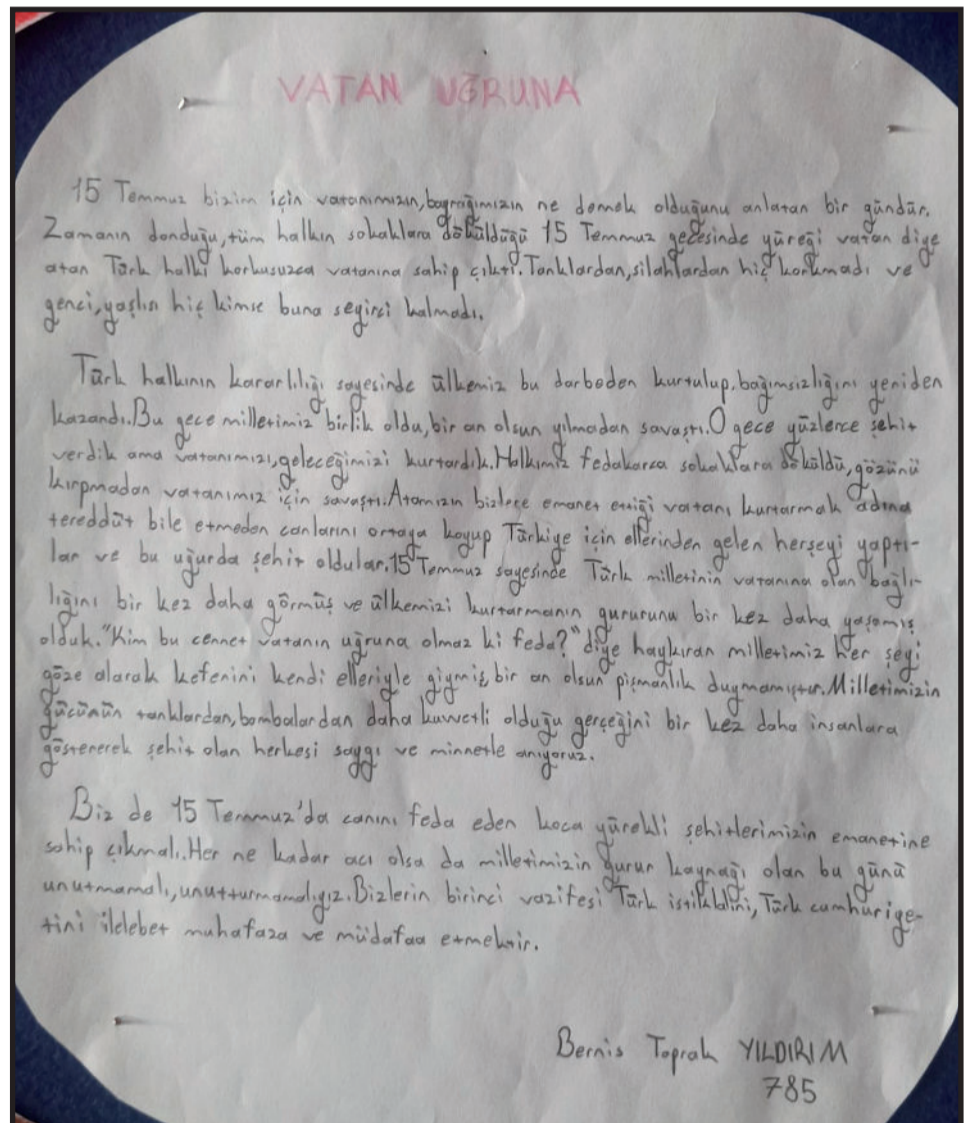 VATAN UĞRUNA
15 Temmuz bizim için vatanımızın,bayrağımızın ne demek olduğunu anlatan bir gündür.
Zamanın donduğu,tüm halkın sokaklara döküldüğü 15 Temmuz gecesinde yüreği vatan diye
atan Türk halkı korkusuzca vatanına sahip çıktı.Tanklardan,silahlardan hiç korkmadı ve
genci,yaşlısı hiç kimse buna seyirci kalmadı.
Türk halkının kararlılığı sayesinde ülkemiz bu darbeden kurtulup,bağımsızlığını yeniden
kazandı.Bu gece milletimiz birlik oldu,bir an olsun yılmadan savaştı.O gece yüzlerce şehit
verdik ama vatanımızı,geleceğimizi kurtardık.Halkımız fedakarca sokaklara döküldü,gözünü
kırpmadan vatanımız için savaştı.Atamızın bizlere emanet ettiği vatanı kurtarmak adına
tereddüt bile etmeden canlarını ortaya koyup Türkiye için ellerinden gelen herşeyi yaptı-
lar ve bu uğurda şehit oldular.15 Temmuz sayesinde Türk milletinin vatanına olan bağlı-
lığını bir kez daha görmüş ve ülkemizi kurtarmanın gururunu bir kez daha yaşamış
olduk."Kim bu cennet vatanın uğruna olmaz ki feda?" diye haykıran milletimiz her şeyi
göze alarak kefenini kendi elleriyle giymiş,bir an olsun pişmanlık duymamıştır.Milletimizin
gücünün tanklardan,bombalardan daha kuvvetli olduğu gerçeğini bir kez daha insanlara
göstererek şehit olan herkesi saygı ve minnetle anıyoruz.
Biz de 15 Temmuz'da canını feda eden koca yürekli şehitlerimizin emanetine
sahip çıkmalı.Her ne kadar acı olsa da milletimizin gurur kaynağı olan bu günü
unutmamalı,unutturmamalıyız.Bizlerin birinci vazifesi Türk istiklalini,Türk cumhuriye-
tini ilelebet muhafaza ve müdafaa etmektir.
Bernis Toprak YILDIRIM
785